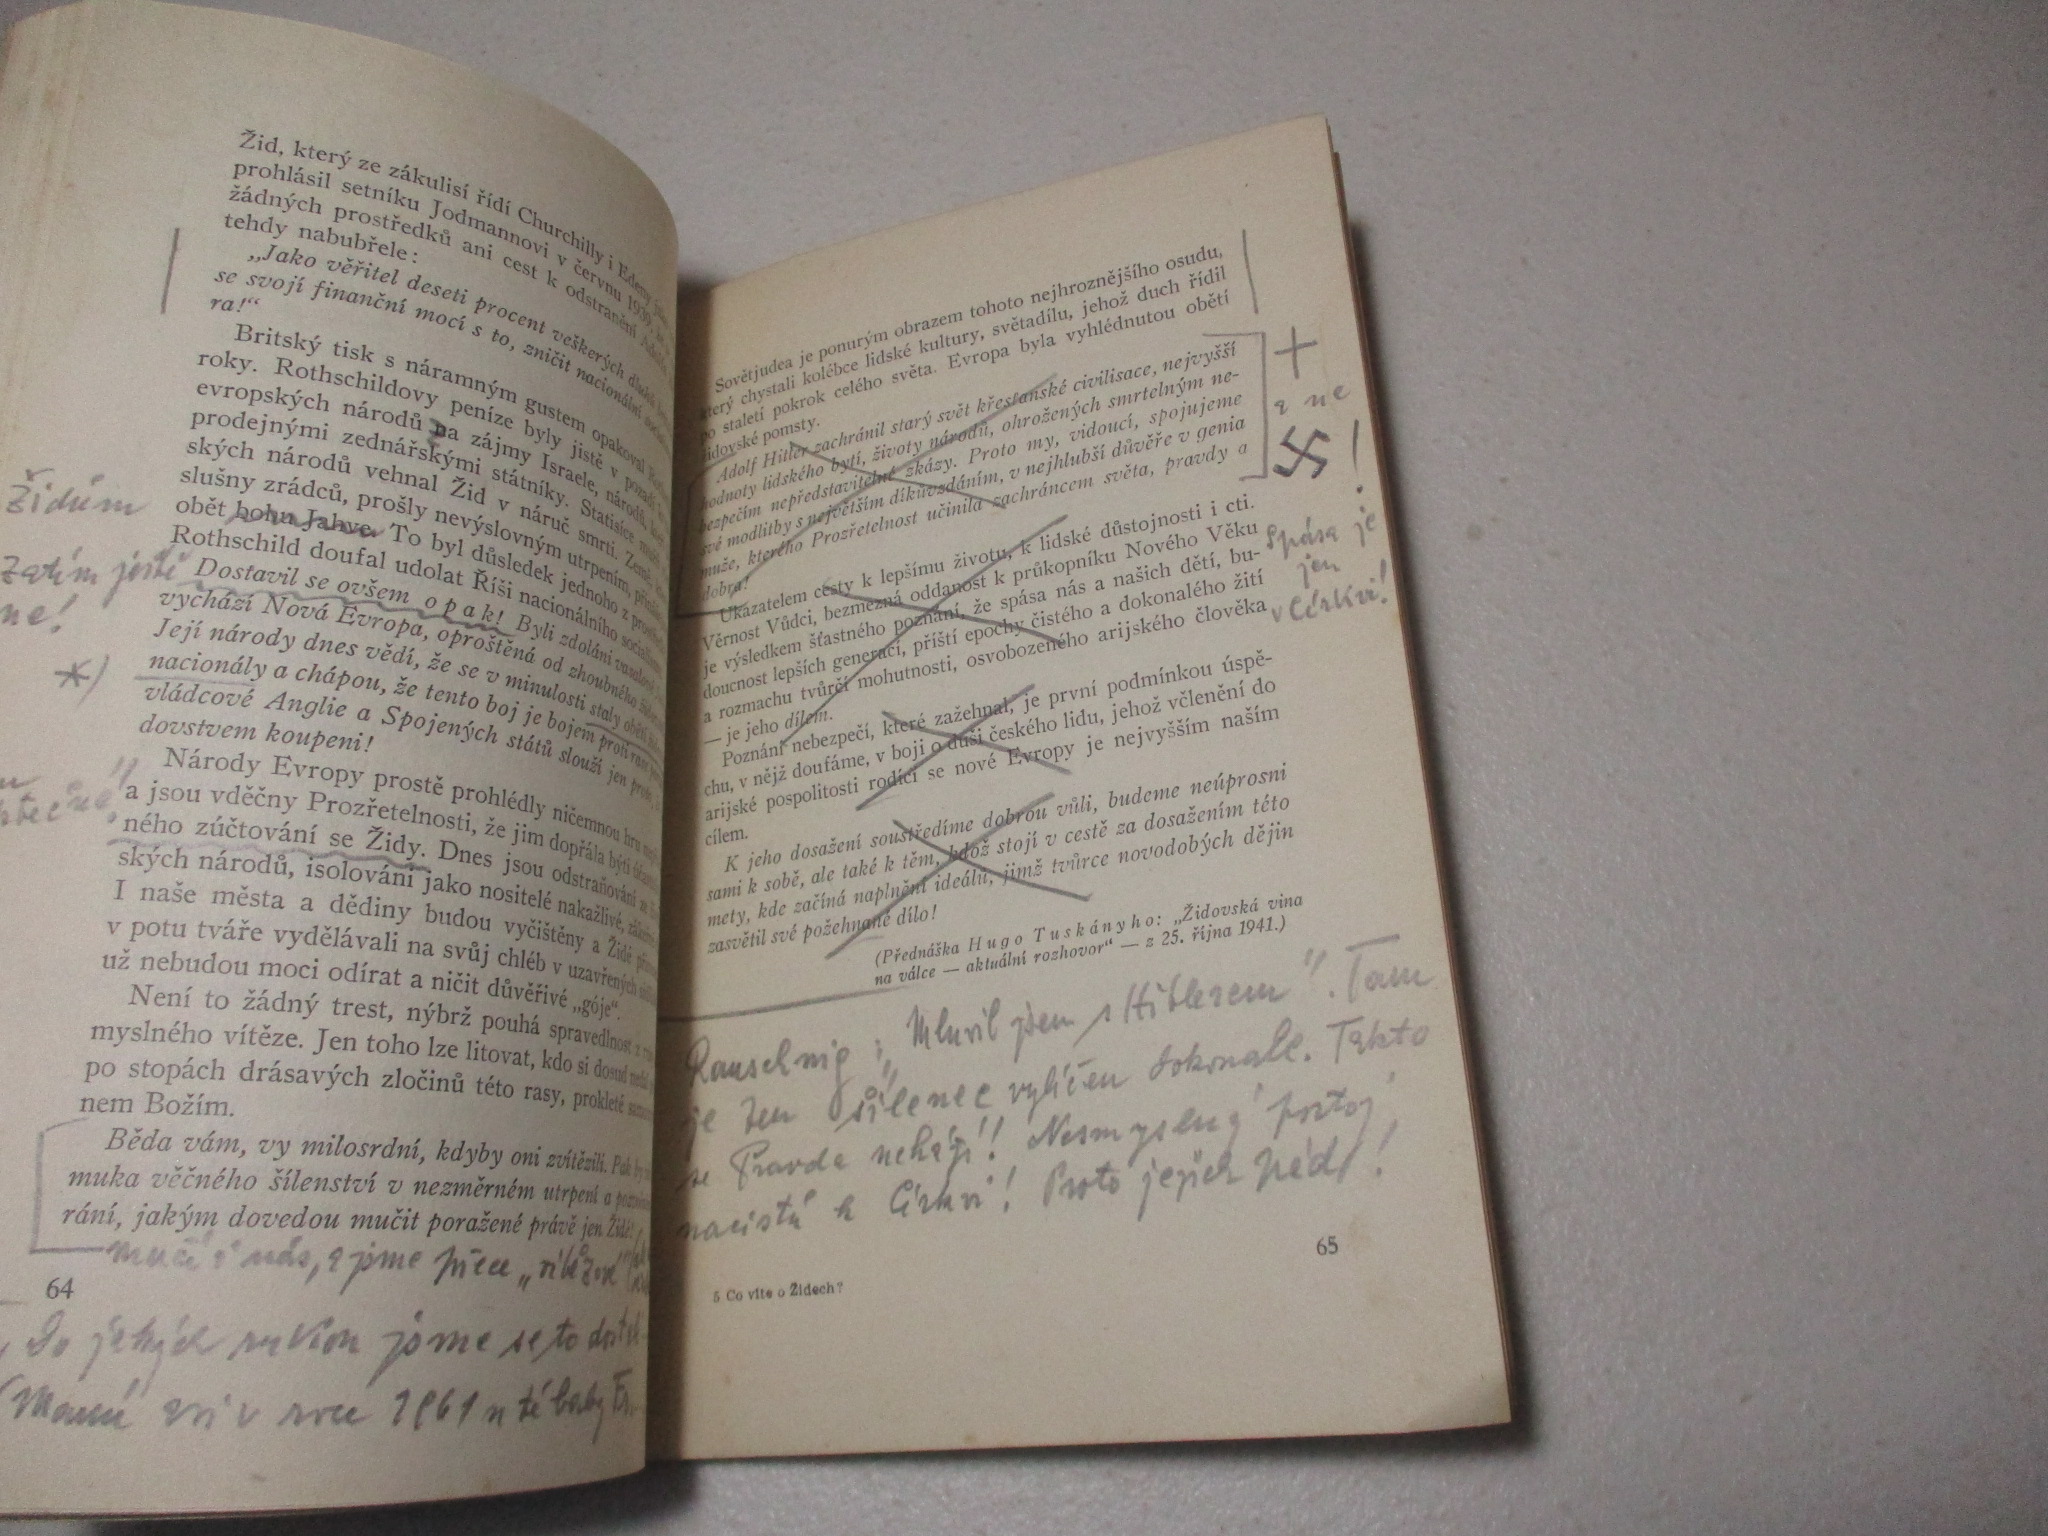 Žid, který ze zákulisí řídí Churchilly i Edeny
prohlásil setníku Jodmannovi v červnu 1939,
žádných prostředků ani cest k odstranění
tehdy nabubřele:
„Jako věřitel deseti procent veškerých
se svojí finanční mocí s to, zničit nacionální
ra!“
Britský tisk s náramným gustem opakoval
roky. Rothschildovy peníze byly jistě v pozadí
evropských národů na zájmy Israele, národů,
prodejnými zednářskými státníky. Statisíce
ských národů vehnal Žid v náruč smrti. Země,
slušny zrádců, prošly nevýslovným utrpením,
Židům
obět bohu Jahve. To byl důsledek jednoho z
Rothschild doufal udolat Říši nacionálního
Zatím ještě
ne!
Dostavil se ovšem opak! Byli zdoláni
vychází Nová Evropa, oproštěná od zhoubného
Její národy dnes vědí, že se v minulosti staly obětí
*)
nacionály a chápou, že tento boj je bojem proti
vládcové Anglie a Spojených států slouží jen proto,
dovstvem koupeni!
Národy Evropy prostě prohlédly ničemnou hru
a jsou vděčny Prozřetelnosti, že jim dopřála býti
ného zúčtování se Židy. Dnes jsou odstraňováni
ských národů, isolováni jako nositelé nakažlivé,
I naše města a dědiny budou vyčištěny a Židé
v potu tváře vydělávali na svůj chléb v uzavřených
už nebudou moci odírat a ničit důvěřivé „góje“.
Není to žádný trest, nýbrž pouhá spravedlnost z
myslného vítěze. Jen toho lze litovat, kdo si dosud
po stopách drásavých zločinů této rasy, prokleté
nem Božím.
Běda vám, vy milosrdní, kdyby oni zvítězili. Pak by
muka věčného šílenství v nezměrném utrpení a
rání, jakým dovedou mučit poražené právě jen Židé!
mučí i nás, a jsme přece
64
Do jakých rukou jsme se to
v roce 1961
Sovětjudea je ponurým obrazem tohoto nejhroznějšího osudu,
který chystali kolébce lidské kultury, světadílu, jehož duch řídil
po staletí pokrok celého světa. Evropa byla vyhlédnutou obětí
židovské pomsty.
Adolf Hitler zachránil starý svět křesťanské civilisace, nejvyšší
hodnoty lidského bytí, životy národů, ohrožených smrtelným ne-
bezpečím nepředstavitelné zkázy. Proto my, vidoucí, spojujeme
své modlitby s největším díkůvzdáním, v nejhlubší důvěře v genia
muže, kterého Prozřetelnost učinila zachráncem světa, pravdy a
dobra!
+
a ne
卐!
Spása je
jen
v Církvi!
Ukázatelem cesty k lepšímu životu, k lidské důstojnosti i cti.
Věrnost Vůdci, bezmezná oddanost k průkopníku Nového Věku
je výsledkem šťastného poznání, že spása nás a našich dětí, bu-
doucnost lepších generací, příští epochy čistého a dokonalého žití
a rozmachu tvůrčí mohutnosti, osvobozeného arijského člověka
— je jeho dílem.
Poznání nebezpečí, které zažehnal, je první podmínkou úspě-
chu, v nějž doufáme, v boji o duši českého lidu, jehož včlenění do
arijské pospolitosti rodící se nové Evropy je nejvyšším naším
cílem.
K jeho dosažení soustředíme dobrou vůli, budeme neúprosni
sami k sobě, ale také k těm, kdož stojí v cestě za dosažením této
mety, kde začíná naplnění ideálů, jimž tvůrce novodobých dějin
zasvětil své požehnané dílo!
(Přednáška Hugo Tuskányho: „Židovská vina
na válce — aktuální rozhovor“ — z 25. října 1941.)
Rauschnig: „Mluvil jsem s Hitlerem“. Tam
je ten šílenec vylíčen dokonale. Takto
se Pravda nehájí! Nesmyslný postoj
nacistů k Církvi! Proto jejich pád!
65
5 Co víte o Židech?